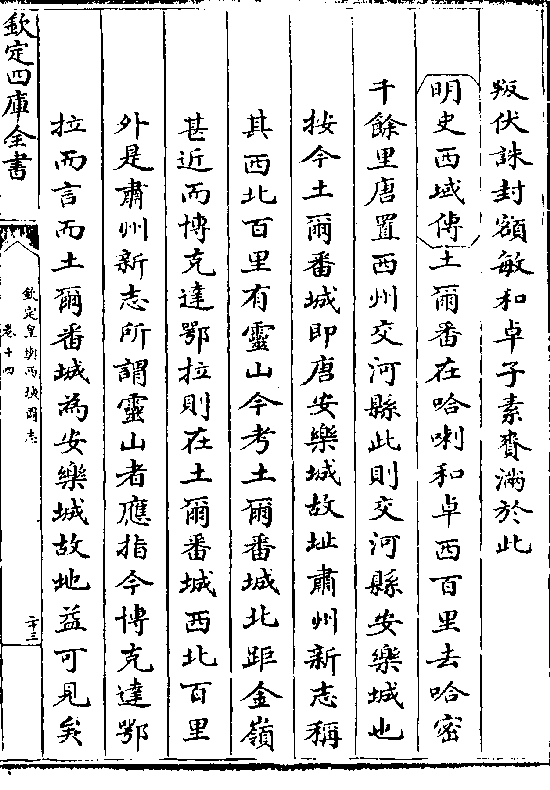 叛伏誅封額敏和卓子素賚滿於此
明史西域傳土爾番在哈喇和卓西百里去哈密
千餘里唐置西州交河縣此則交河縣安樂城也
按今土爾番城即唐安樂城故址肅州新志稱
其西北百里有靈山今考土爾番城北距金嶺
甚近而博克達鄂拉則在土爾番城西北百里
外是肅州新志所謂靈山者應指今博克達鄂
拉而言而土爾番城為安樂城故地益可見矣
欽定四庫全書
欽定皇輿西域圖志
卷十四
二十三